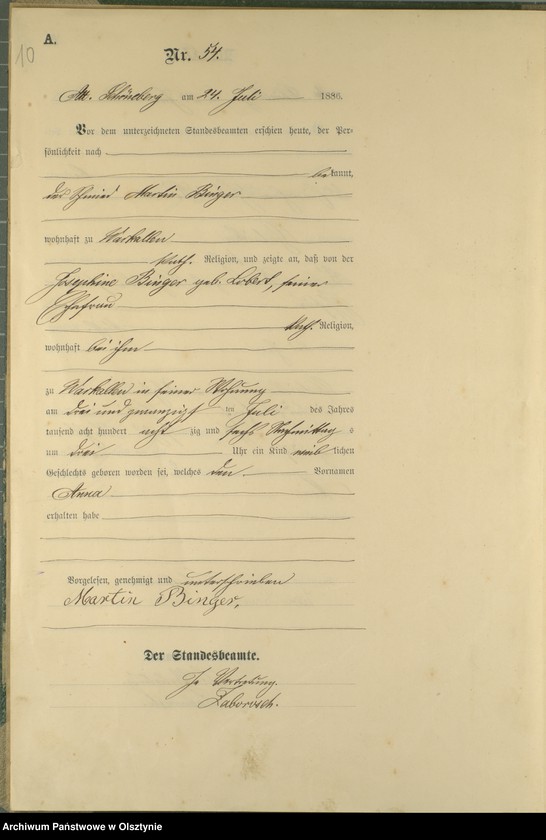 10
A.
Nr. 54.
Alt. Schöneberg am 24. Juli 1886.
Vor dem unterzeichneten Standesbeamten erschien heute, der Per-
sönlichkeit nach
bekannt,
der Schmied Martin Binger
wohnhaft zu Warkallen
kath. Religion, und zeigte an, daß von der
Josephine Binger geb. Lobert, seiner
Ehefrau
kath. Religion,
wohnhaft bei ihm
zu Warkallen in seiner Wohnung
am drei und zwanzigsten Juli des Jahres
tausend acht hundert acht zig und sechs Nachmittag s
um drei Uhr ein Kind weib lichen
Geschlechts geboren worden sei, welches den Vornamen
Anna
erhalten habe
Vorgelesen, genehmigt und unterschrieben
Martin Binger.
Der Standesbeamte.
In Vertretung.
Zaborosch.
Archiwum Państwowe w Olsztynie